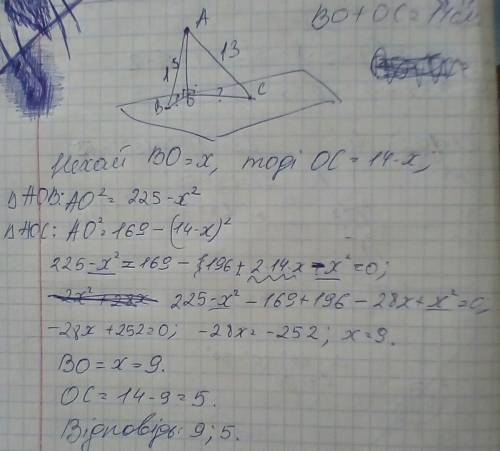 BO + OC = 14см
A
15
13
B
O
?
C
Нехай BO = x, тоді OC = 14-x;
ΔAOB: AO² = 225 - x²
ΔAOC: AO² = 169 - (14-x)²
225 - x² = 169 - 196 + 2·14x - x² = 0;
225 - x² - 169 + 196 - 28x + x² = 0;
-28x + 252 = 0; -28x = -252; x = 9.
BO = x = 9.
OC = 14 - 9 = 5.
Відповідь: 9; 5.